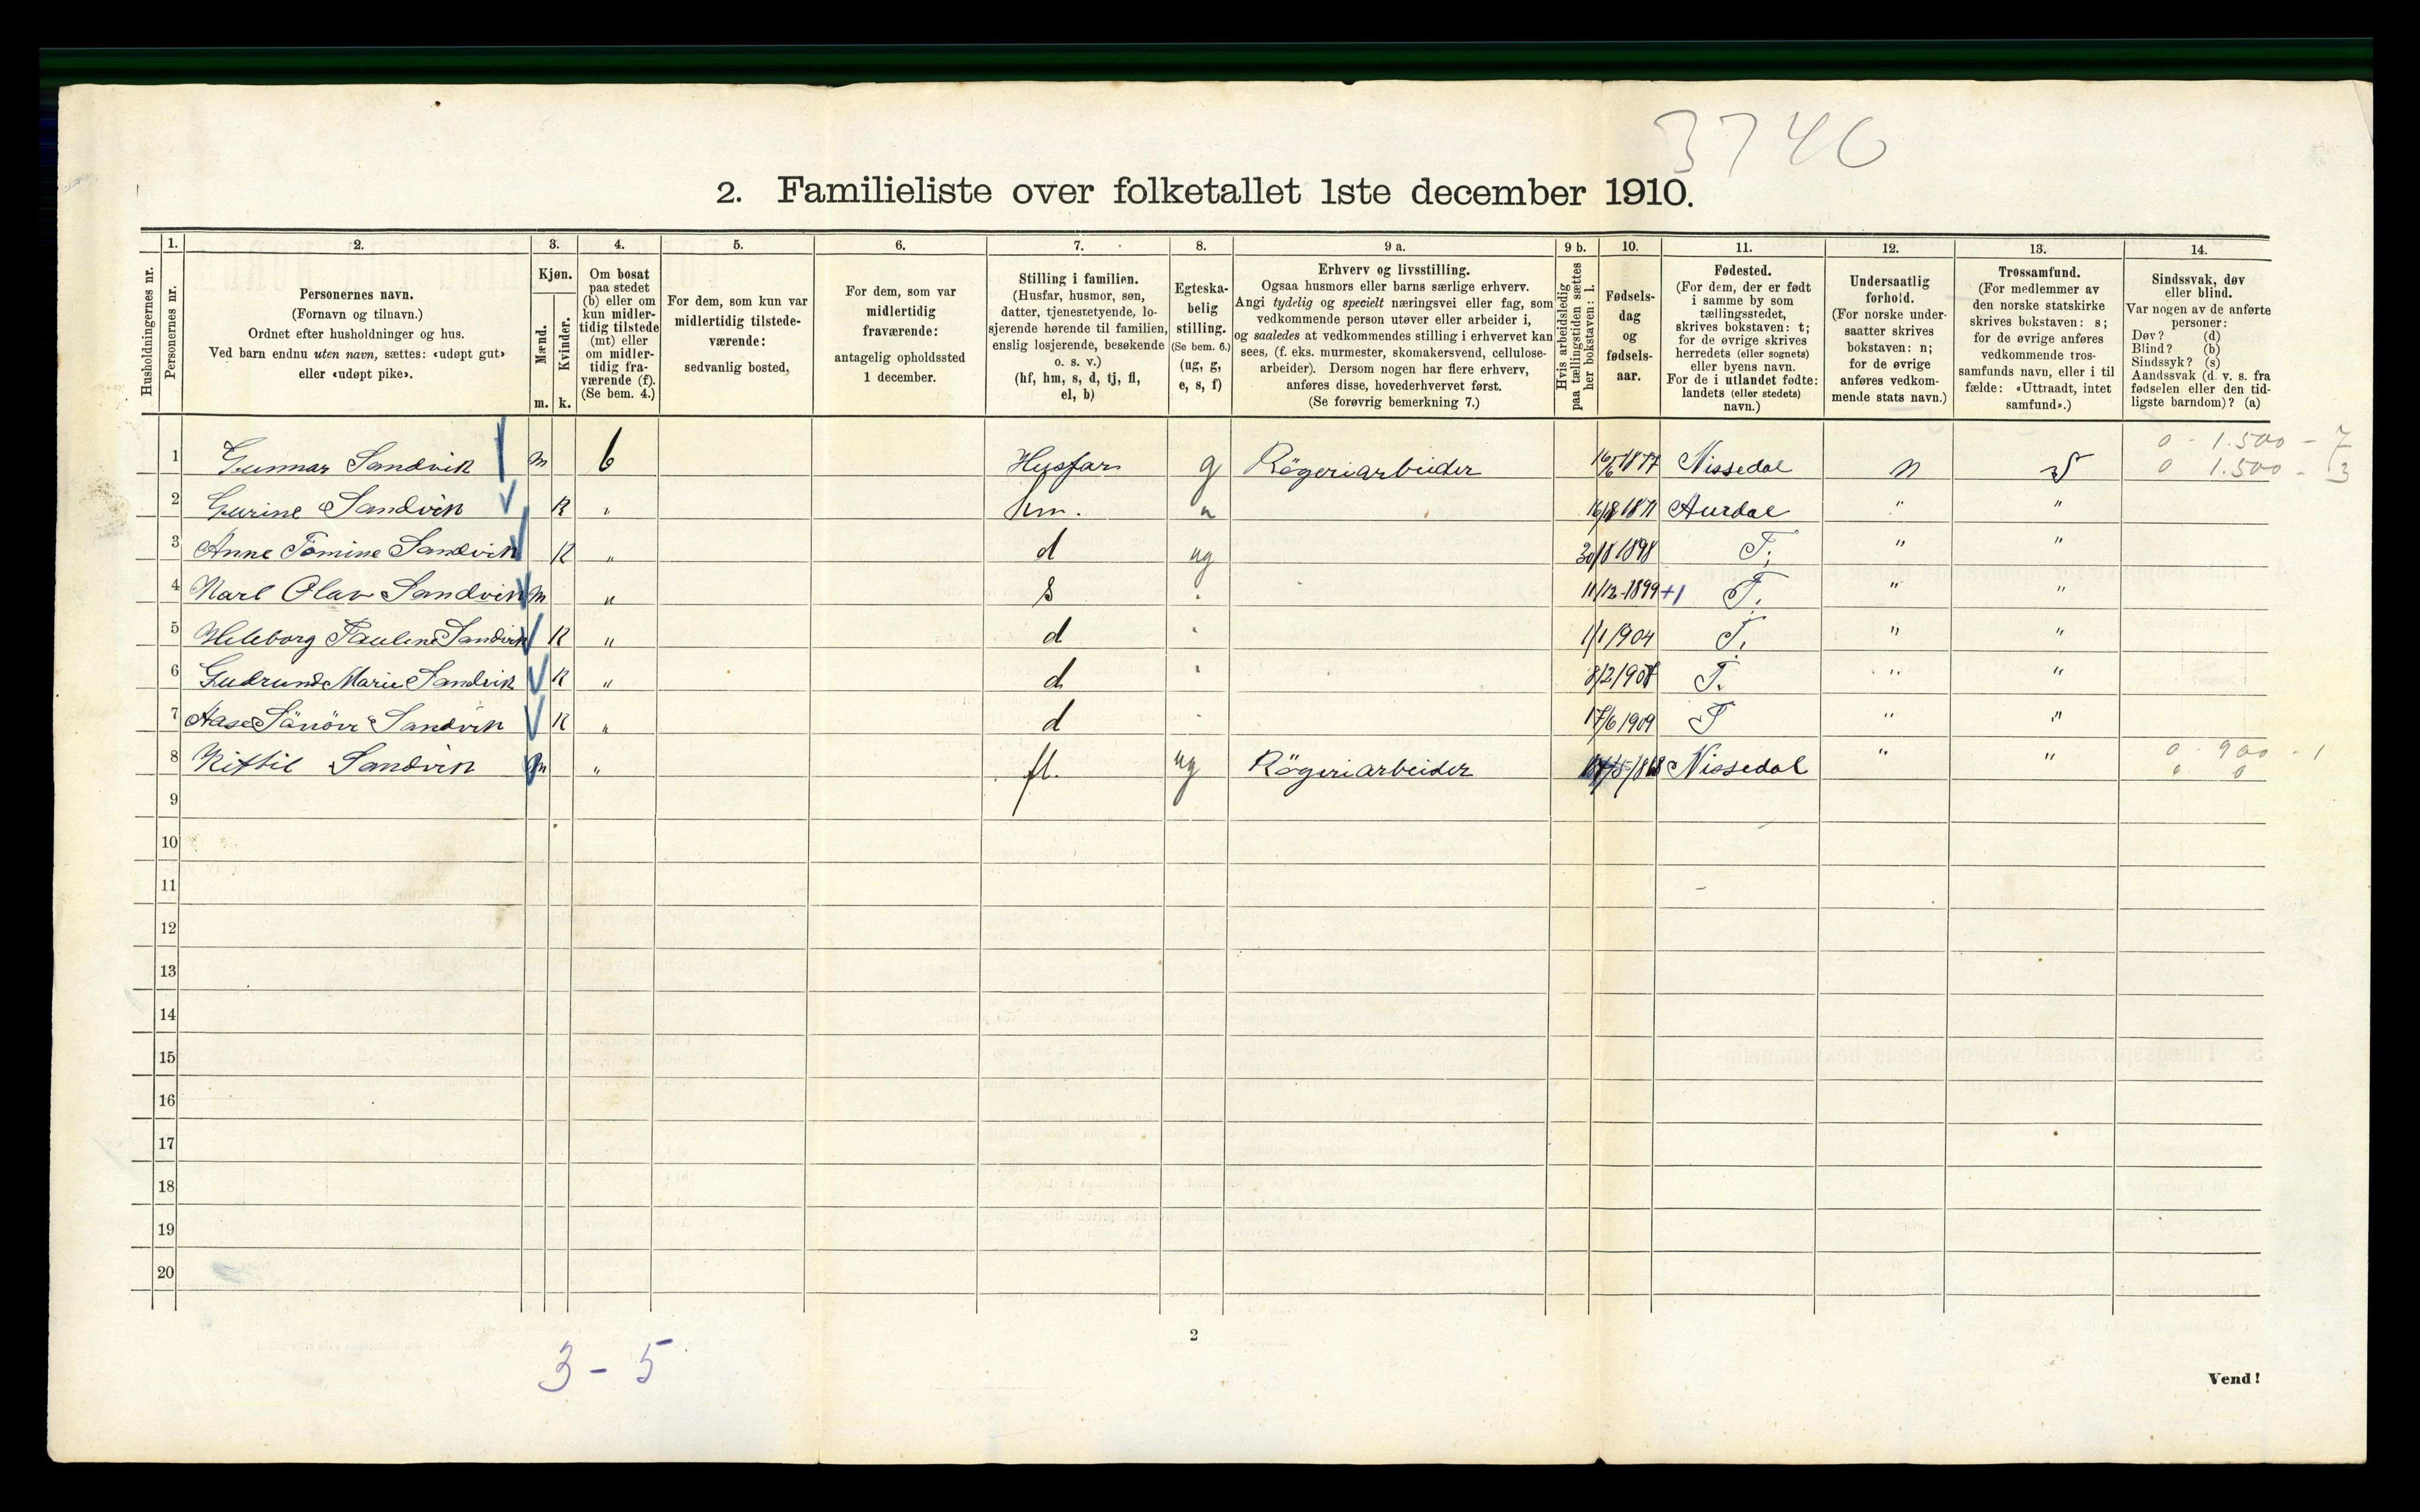 3746
2. Familieliste over folketallet 1ste december 1910.
Husholdningernes nr.
1. Personernes nr.
2. Personernes navn. (Fornavn og tilnavn.) Ordnet efter husholdninger og hus. Ved barn endnu uten navn, sættes: «udøpt gut» eller «udøpt pike».
3. Kjøn. Mænd. m. Kvinder. k.
4. Om bosat paa stedet (b) eller om kun midler-tidig tilstede (mt) eller om midler-tidig fra-værende (f). (Se bem. 4.)
5. For dem, som kun var midlertidig tilstede-værende: sedvanlig bosted,
6. For dem, som var midlertidig fraværende: antagelig opholdssted 1 december.
7. Stilling i familien. (Husfar, husmor, søn, datter, tjenestetyende, lo-sjerende hørende til familien, enslig losjerende, besøkende o. s. v.) (hf, hm, s, d, tj, fl, el, b)
8. Egteska-belig stilling. (Se bem. 6.) (ug, g, e, s, f)
9 a. Erhverv og livsstilling. Ogsaa husmors eller barns særlige erhverv. Angi tydelig og specielt næringsvei eller fag, som vedkommende person utøver eller arbeider i, og saaledes at vedkommendes stilling i erhvervet kan sees, (f. eks. murmester, skomakersvend, cellulose-arbeider). Dersom nogen har flere erhverv, anføres disse, hovederhvervet først. (Se forøvrig bemerkning 7.)
9 b. Hvis arbeidsledig paa tællingstiden sættes her bokstaven: l.
10. Fødsels-dag og fødsels-aar.
11. Fødested. (For dem, der er født i samme by som tællingsstedet, skrives bokstaven: t; for de øvrige skrives herredets (eller sognets) eller byens navn. For de i utlandet fødte: landets (eller stedets) navn.)
12. Undersaatlig forhold. (For norske under-saatter skrives bokstaven: n; for de øvrige anføres vedkom-mende stats navn.)
13. Trossamfund. (For medlemmer av den norske statskirke skrives bokstaven: s; for de øvrige anføres vedkommende tros-samfunds navn, eller i til fælde: «Uttraadt, intet samfund».)
14. Sindssvak, døv eller blind. Var nogen av de anførte personer: Døv? (d) Blind? (b) Sindssyk? (s) Aandssvak (d. v. s. fra fødselen eller den tid-ligste barndom)? (a)
1 Gunnar Sandvik m b Husfar g Røgeriarbeider 1877 Nissedal n s 0 - 1.500 - 7
0 1.500 - 3
2 Gurine Sandvik K " hm. " 1871 Aurdal " "
3 Anne Tomine Sandvik K " d ug 30/8 1898 T; " "
4 Karl Olav Sandvik m " s " 11/12-1899 +1 T. " "
5 Pauline Sandvik K " d " 1/1 1904 T. " "
6 Gudrund Marie Sandvik K " d " 8/2 1908 T. " "
7 Aase Sandvik K " d " 17/6 1909 T " "
8 Kittil Sandvik m " fl. ug Røgeriarbeider 1868 Nissedal " " 0 - 900 - 1
0 0
9
10
11
12
13
14
15
16
17
18
19
20
2
3 - 5
Vend!